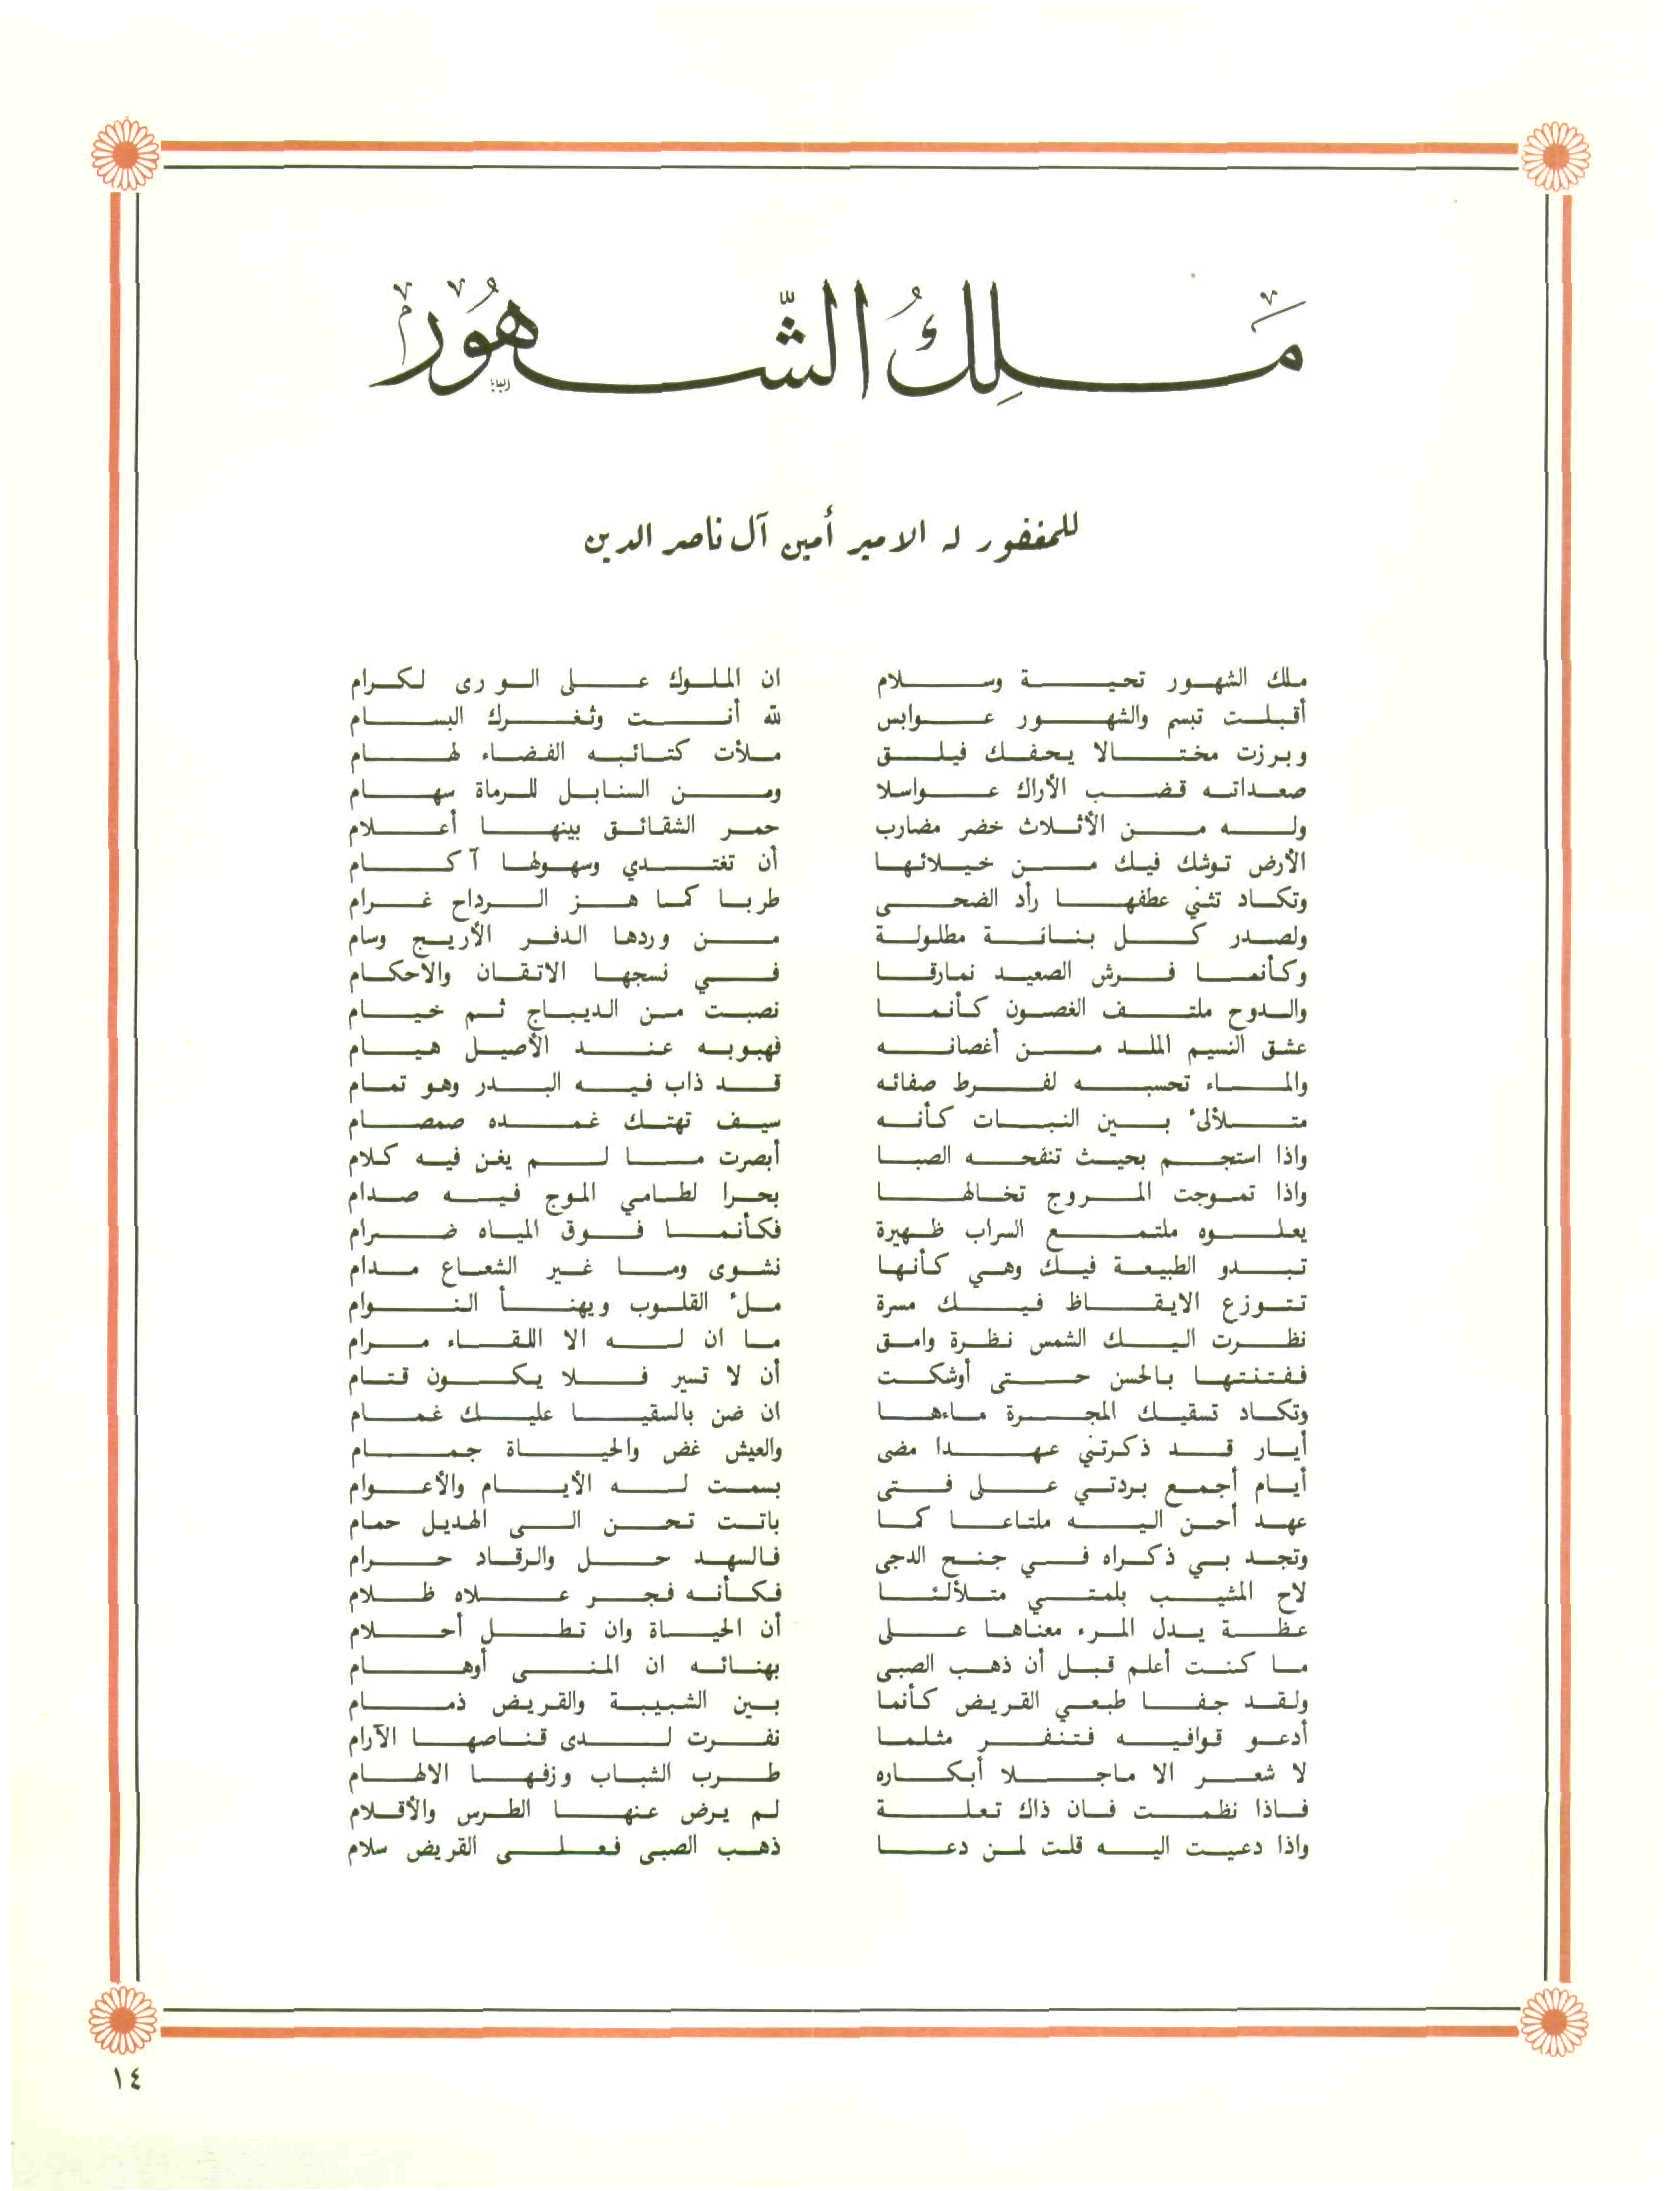 مَلِكُ الشُّهُور
للمغفور له الامير أمين آل ناصر الدين
ملك الشهور تحية وسلام ان الملوك على الورى لكرام
أقبلت تبسم والشهور عوابس لله أنت وثغرك البسام
وبرزت مختالا يحفك فيلق ملأت كتائبه الفضاء لهام
صعداته قضب الأراك عواسلا ومن السنابل للرماة سهام
وله من الأثلاث خضر مضارب حمر الشقائق بينها أعلام
الأرض توشك فيك من خيلائها أن تغتدي وسهولها آكام
وتكاد تثني عطفها رأد الضحى طربا كما هز الرداح غرام
ولصدر كل بنانة مطلولة من وردها الدفر الأريج وسام
وكأنما فرش الصعيد نمارقا في نسجها الاتقان والاحكام
والدوح ملتف الغصون كأنما نصبت من الديباج ثم خيام
عشق النسيم الملد من أغصانه فهبوبه عند الأصيل هيام
والماء تحسبه لفرط صفائه قد ذاب فيه البدر وهو تمام
متلألئ بين النبات كأنه سيف تهتك غمده صمصام
واذا استجم بحيث تنفحه الصبا أبصرت ما لم يغن فيه كلام
واذا تموجت المروج تخالها بحرا لطامي الموج فيه صدام
يعلوه ملتمع السراب ظهيرة فكأنما فوق المياه ضرام
تبدو الطبيعة فيك وهي كأنها نشوى وما غير الشعاع مدام
تتوزع الايقاظ فيك مسرة ملء القلوب ويهنأ النوام
نظرت اليك الشمس نظرة وامق ما ان له الا اللقاء مرام
ففتنتها بالحسن حتى أوشكت أن لا تسير فلا يكون قتام
وتكاد تسقيك المجرة ماءها ان ضن بالسقيا عليك غمام
أيار قد ذكرتني عهدا مضى والعيش غض والحياة جمام
أيام أجمع بردتي على فتى بسمت له الأيام والأعوام
عهد أحن اليه ملتاعا كما باتت تحن الى الهديل حمام
وتجد بي ذكراه في جنح الدجى فالسهد حل والرقاد حرام
لاح المشيب بلمتي متلألئا فكأنه فجر علاه ظلام
عظة يدل المرء معناها على أن الحياة وان تطل أحلام
ما كنت أعلم قبل أن ذهب الصبى بهنائه ان المنى أوهام
ولقد جفا طبعي القريض كأنما بين الشبيبة والقريض ذمام
أدعو قوافيه فتنفر مثلما نفرت لدى قناصها الآرام
لا شعر الا ماجلا أبكاره طرب الشباب وزفها الالهام
فاذا نظمت فان ذاك تعلة لم يرض عنها الطرس والأقلام
واذا دعيت اليه قلت لمن دعا ذهب الصبى فعلى القريض سلام
١٤